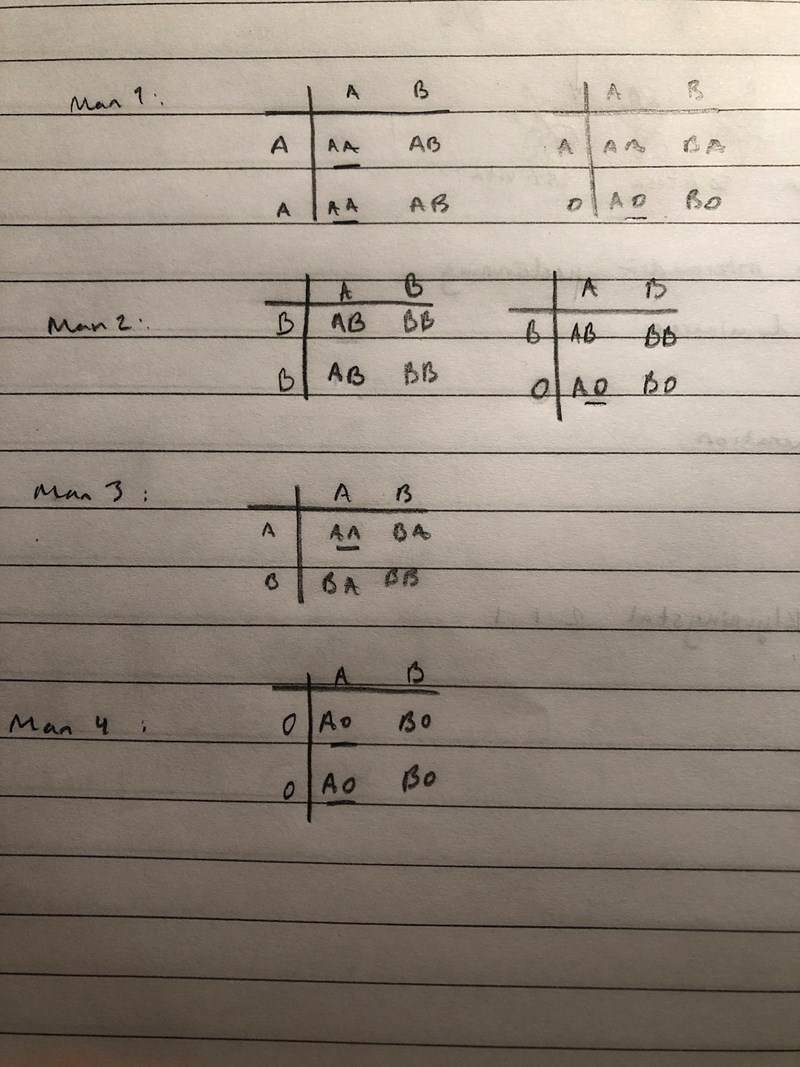 Man 1: A B A B
A AA AB A AA BA
A AA AB O AO BO
Man 2: A B A B
B AB BB B AB BB
B AB BB O AO BO
Man 3: A B
A AA BA
B BA BB
Man 4: A B
O AO BO
O AO BO